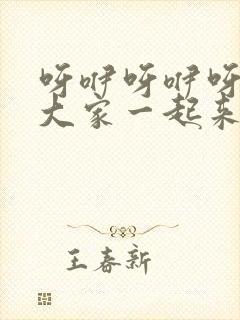 呀咿呀咿呀
大家一起来
王春新